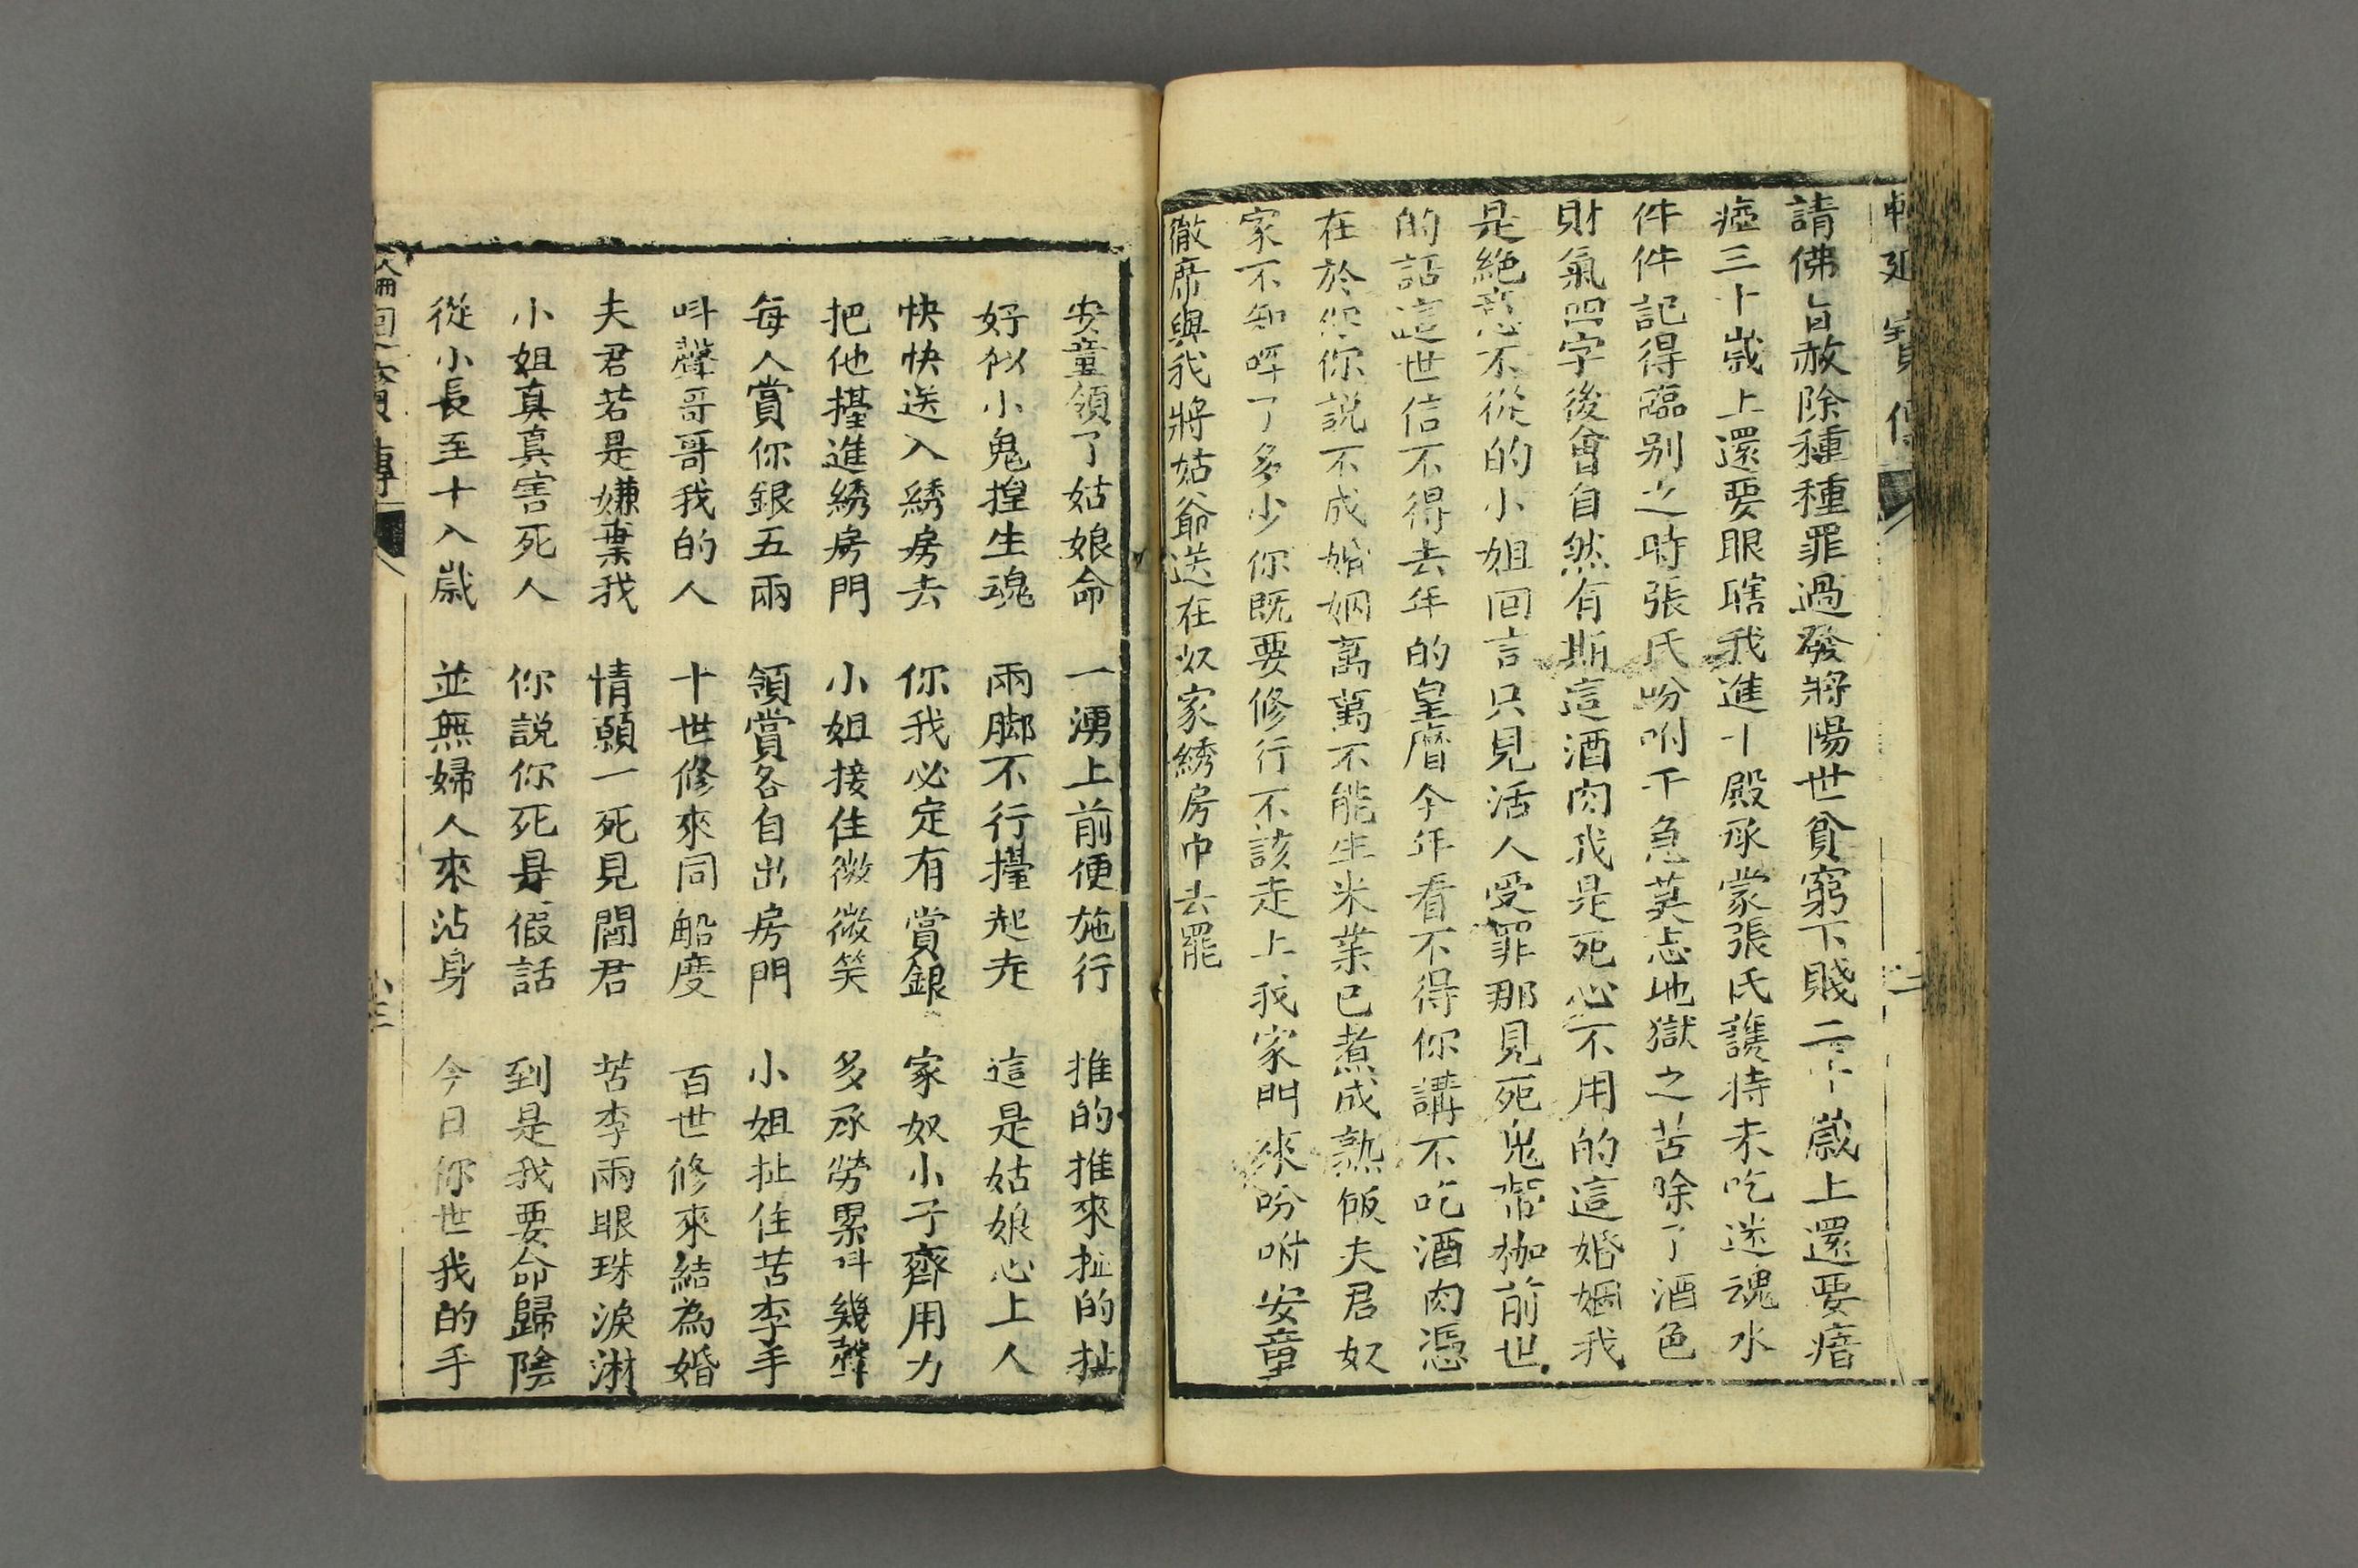 請佛旨赦除種種罪過發將陽世貧窮下賤二十歲上還要瘖
瘂三十歲上還要眼瞎我進十殿承蒙張氏謢持未吃迷魂水
件件記得臨别之時張氏吩咐千急莫忘地獄之苦除了酒色
財氣四字後會自然有斯這酒肉我是死心不用的這婚姻我
是絶意不從的小姐回言只見活人受罪那見死鬼帶枷前世
的話這世信不得去年的皇曆今年看不得你講不吃酒肉憑
在於你你説不成婚姻萬萬不能生米業已煮成熟飯夫君奴
家不知呼了多少你既要修行不該走上我家門來吩咐安童
徹席與我將姑爺送在奴家綉房中去罷
安童領了姑娘命 一湧上前便施行 推的推來扯的扯
好似小鬼揘生魂 兩脚不行擡起走 這是姑娘心上人
快快送入綉房去 你我必定有賞銀 家奴小子齊用力
把他擡進綉房門 小姐接住微微笑 多承勞累呌幾聲
每人賞你銀五兩 領賞各自出房門 小姐扯住苦李手
呌聲哥哥我的人 十世修來同船度 百世修來結為婚
夫君若是嫌棄我 情願一死見閻君 苦李兩眼珠淚淋
小姐真真害死人 你説你死是假話 到是我要命歸陰
從小長至十入歲 並無婦人來沾身 今日你世我的手